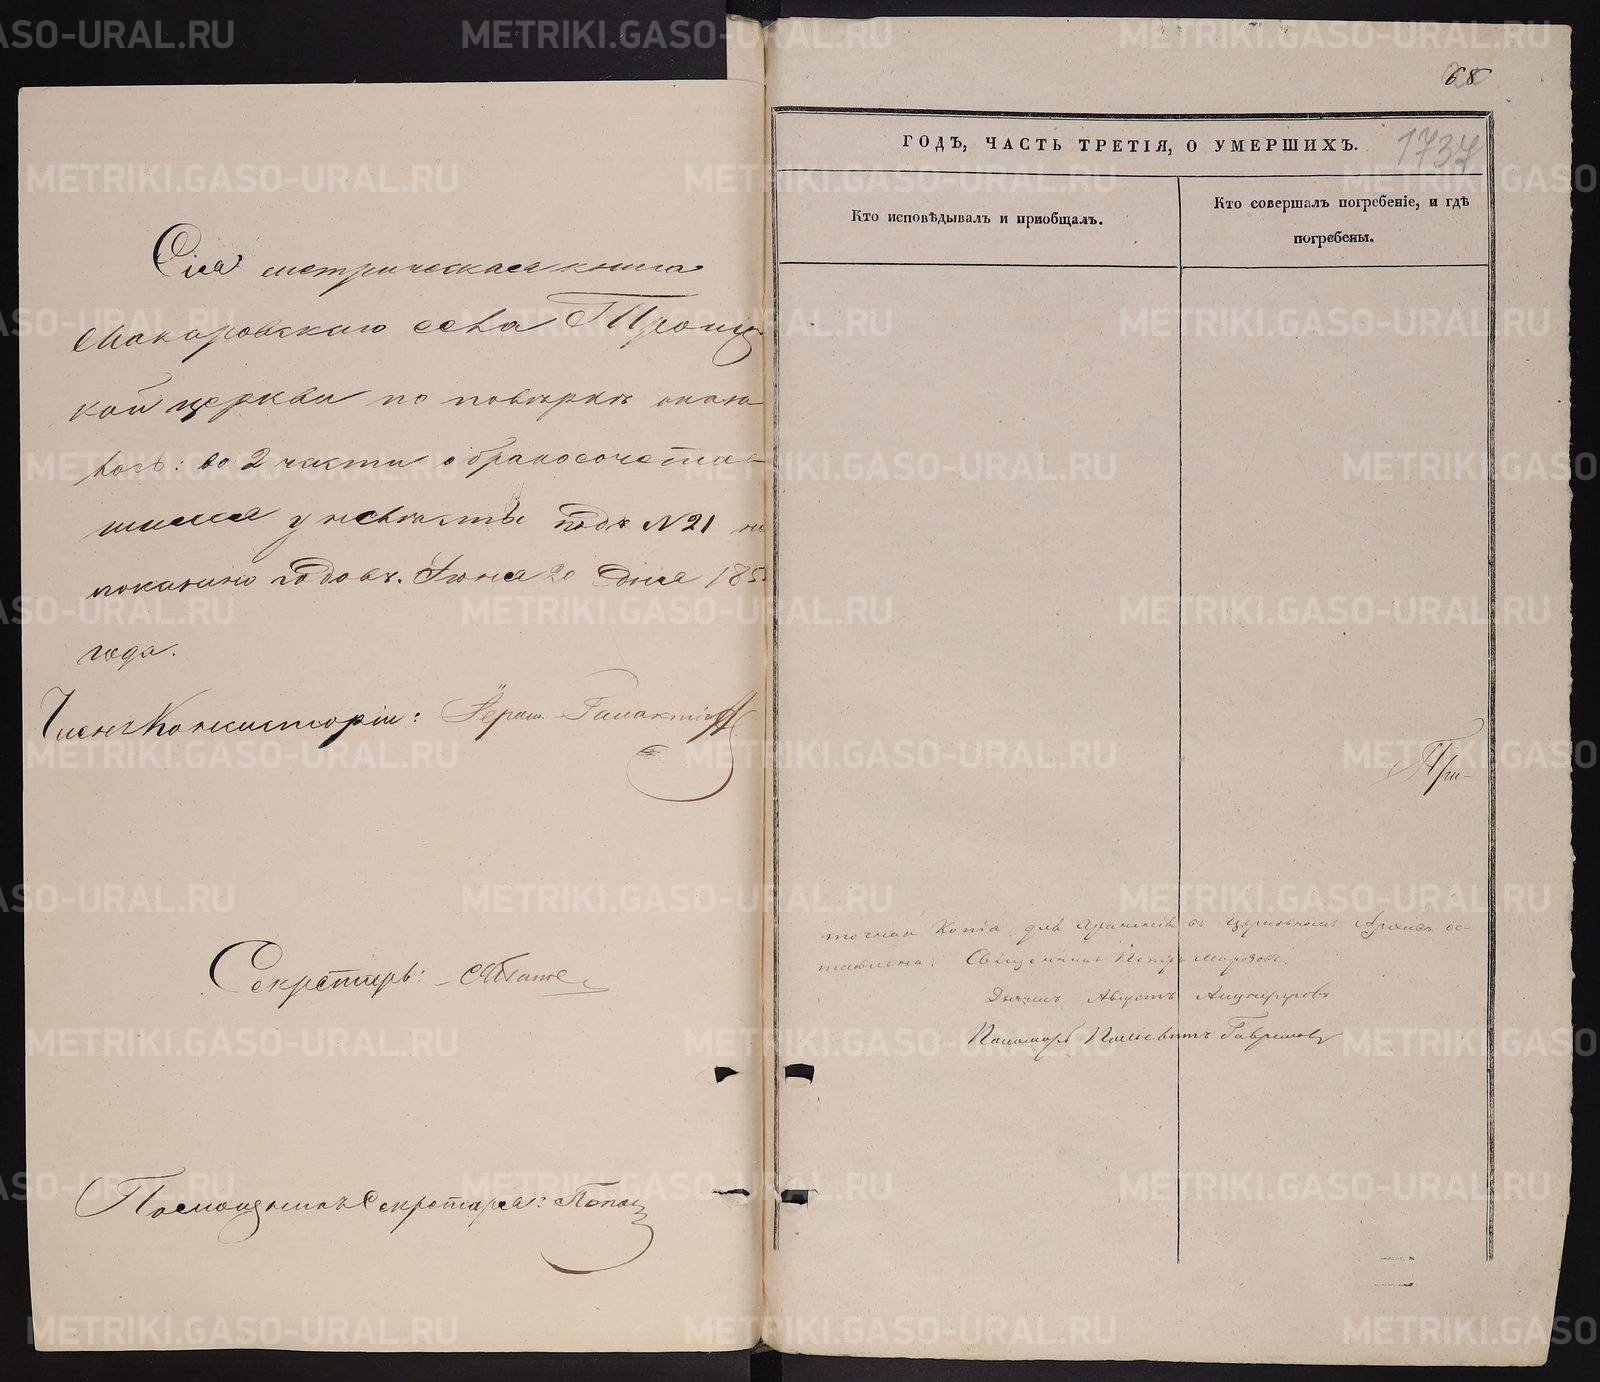 Сія метрическая книга
Макаровскаго села Троиц
кой церкви по повѣркѣ оказа
лось: во 2 части о бракосочетав
шихся у невѣсты подъ №21 не
показано годовъ. Іюня 20 дня 185
года.
Членъ Консисторіи: Іером. Галактіонъ
Секретарь:
Помощникъ Секретаря: Попов
68
1737
ГОДЪ, ЧАСТЬ ТРЕТІЯ, О УМЕРШИХЪ.
Кто исповѣдывалъ и приобщалъ.
Кто совершалъ погребеніе, и гдѣ
погребены.
При-
точная копія для храненія въ церковномъ Архивѣ ос-
тавлена. Священникъ Петръ Морозовъ.
Дьячекъ Августъ
Пономарь Гаврилов
METRIKI.GASO-URAL.RU